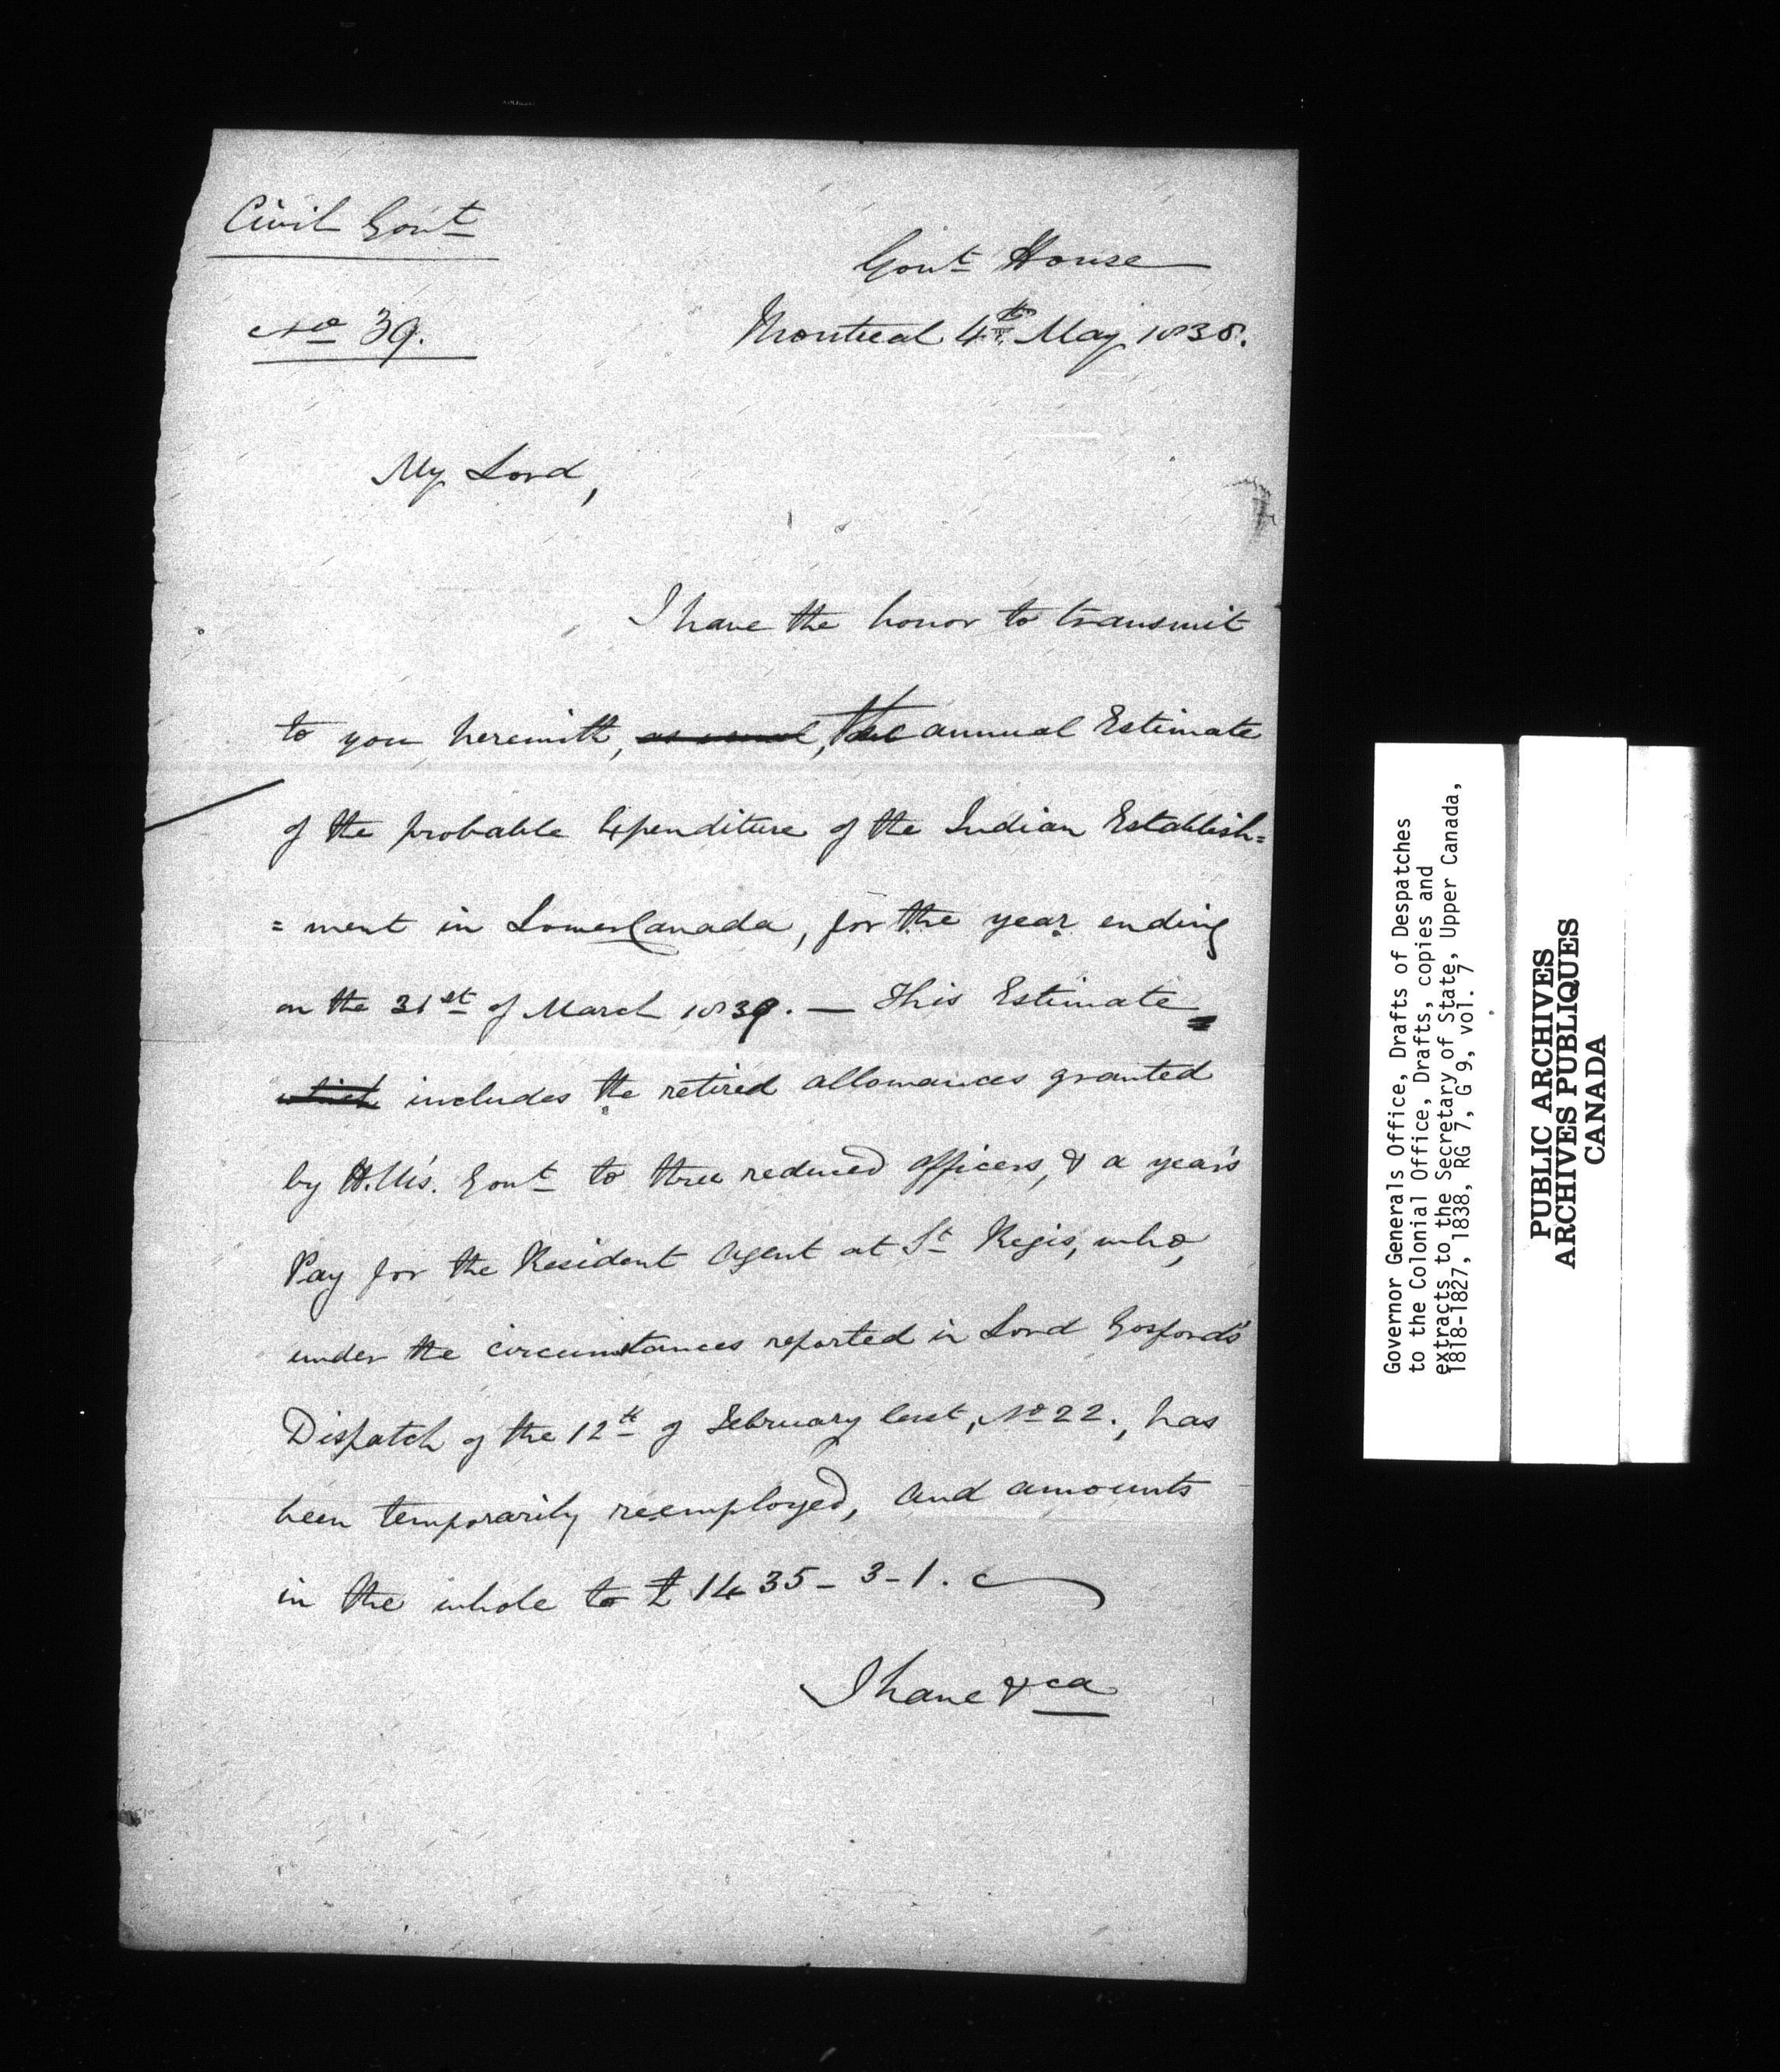 Civil Govt
Govt House
No 39.
Montreal 4th May 1838.
My Lord,
I have the honor to transmit
to you herewith, as usual, the annual Estimate
of the probable Expenditure of the Indian Establish=
=ment in Lower Canada, for the year ending
on the 31st of March 1839. — This Estimate
which includes the retired allowances granted
by H.M's. Govt to three reduced officers, & a year's
Pay for the Resident Agent at St Regis, who,
under the circumstances reported in Lord Gosford's
Dispatch of the 12th of February last, No 22., has
been temporarily reemployed, and amounts
in the whole to £1435-3-1.
I have &ca
Governor Generals Office, Drafts of Despatches
to the Colonial Office, Drafts, copies and
extracts to the Secretary of State, Upper Canada,
1818-1827, 1838, RG 7, G 9, vol. 7
PUBLIC ARCHIVES
ARCHIVES PUBLIQUES
CANADA